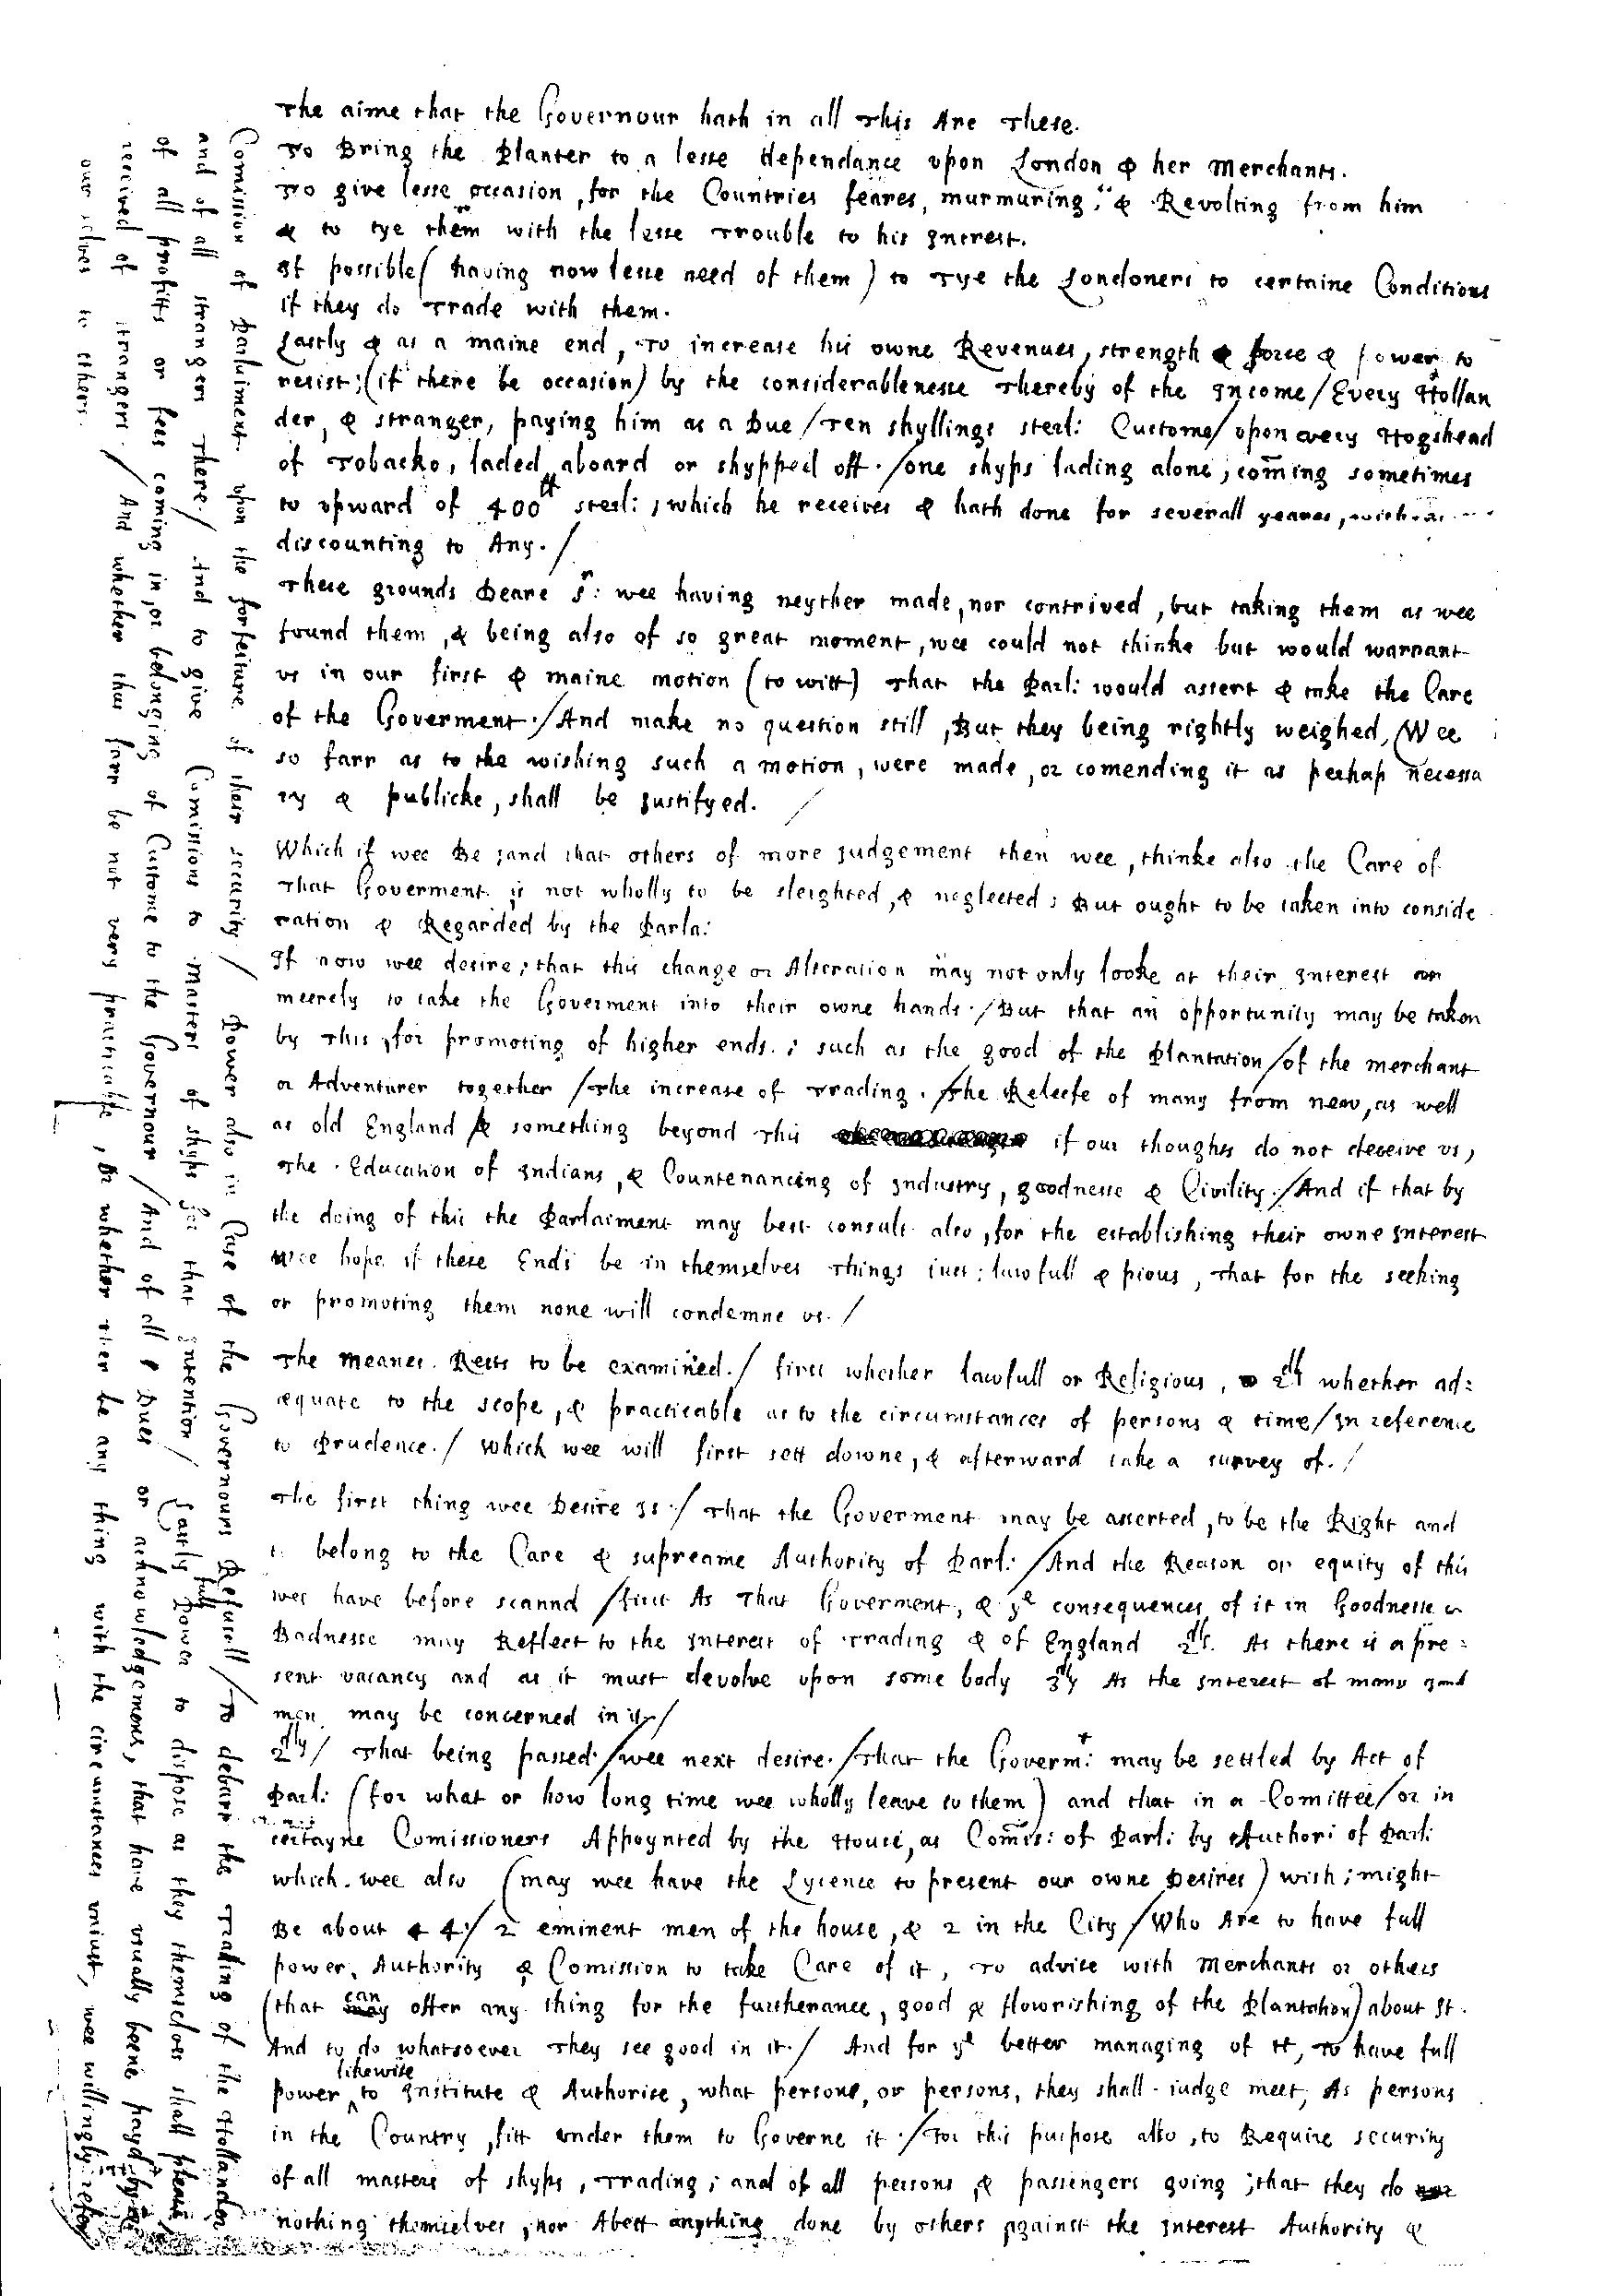 The aime that the Governour hath in all This Are These.
To Bring the Planter to a lesse dependance upon London & her Merchants.
To give lesse occasion, for the Countries feares, murmuring, & Revolting from him
& to tye them with the lesse Trouble to his Intrest.
If possible (having now lesse need of them) to Tye the Londoners to certaine Conditions
if they do Trade with them.
Lastly & as a maine end, To increase his owne Revenues, strength & force & power to
resist; (if there be occasion) by the considerablenesse Thereby of the Income / Every Hollan
der, & stranger, paying him as a Due / Ten shyllings sterl: Custome / upon every Hogshead
of Tobacko, laded aboard or shypped off. / one shyps lading alone, coming sometimes
to upward of 400 sterl: , which he receives & hath done for severall yeares,
discounting to Any. /
These grounds Deare Sr: wee having neyther made, nor contrived, but taking them as wee
found them, & being also of so great moment, wee could not thinke but would warrant
us in our first & maine motion (to witt) That the Parl: would assert & take the Care
of the Goverment. / And make no question still, But they being rightly weighed, Wee
so farr as to the wishing such a motion, were made, or comending it as perhap necessa
ry & publicke, shall be Justifyed. /
Which if wee Be ; and that others of more Judgement then wee, thinke also the Care of
That Goverment is not wholly to be sleighted, & neglected ; But ought to be taken into conside
ration & Regarded by the Parla:
If now wee desire; that this change or Alteration may not only looke at their Interest
meerely to take the Goverment into their owne hands. / But that an opportunity may be taken
by This, for promoting of higher ends. ; such as the good of the Plantation / of the merchant
or Adventurer together / The increase of Trading. / The Releefe of many from new, as well
as old England & something beyond This if our thoughts do not deceive us,
The Education of Indians, & Countenancing of Industry, goodnesse & Civility. / And if that by
the doing of this the Parlaiment may best consult also, for the establishing their owne Interest
wee hope if these Ends be in themselves Things iust: lawfull & pious, That for the seeking
or promoting them none will condemne us. /
The Meanes. Rests to be examined. / first whether lawfull or Religious, 2ly whether ad:
æquate to the scope, & practicable as to the circumstances of persons & time / In reference
to Prudence. / Which wee will first sett downe, & afterward take a survey of. /
The first thing wee Desire Is. / That the Goverment may be asserted, to be the Right and
to belong to the Care & supreame Authority of Parl: / And the Reason or equity of this
wee have before scannd / first As That Goverment, & ye consequences of it in Goodnesse or
Badnesse may Reflect to the Interest of Trading & of England 2ly. As there is a pre:
sent vacancy and as it must devolve upon some body 3ly As the Interest of many good
men may be concerned in it. /
2dly / That being passed. / wee next desire. / That the Govermt: may be settled by Act of
Parl: (for what or how long time wee wholly leave to them) and that in a Comittee / or in
certayne Comissioners Appoynted by the House, as Comrs: of Parl: by Authori of Parl:
which wee also (may wee have the Lycence to present our owne Desires) wish; might
Be about 4 / 2 eminent men of the house, & 2 in the City / Who Are to have full
power, Authority & Comission to take Care of it, To advise with Merchants or others
(that can offer any thing for the furtherance, good & flowrishing of the Plantation) about It.
And to do whatsoever They see good in it. / And for ye better managing of It, To have full
power likewise to Institute & Authorise, what persone, or persons, they shall iudge meet, As persons
in the Country, fitt under them to Governe it. / For this purpose also, to Require security
of all masters of shyps, Trading; and of all persons & passengers going; that they do
nothing themselves, nor Abett anything done by others against the Interest Authority &
Comission of Parlaiment upon the forfeiture of their security / Power also in Case of the Governours Refusall / To debarr the Trading of the Hollander
and of all strangers There. / And to give Comissions to Masters of shyps for that Intention / Lastly full Power to dispose as they themselves shall please
of all profitts or fees coming in, or belonging of Custome to the Governour / And of all Dues or acknowledgemens, that have usually beene payd by or
received of strangers. / And whether thus farr be not very practicable, Or whether ther be any thing with the circumstances unjust, wee willingly refer
our selves to others.